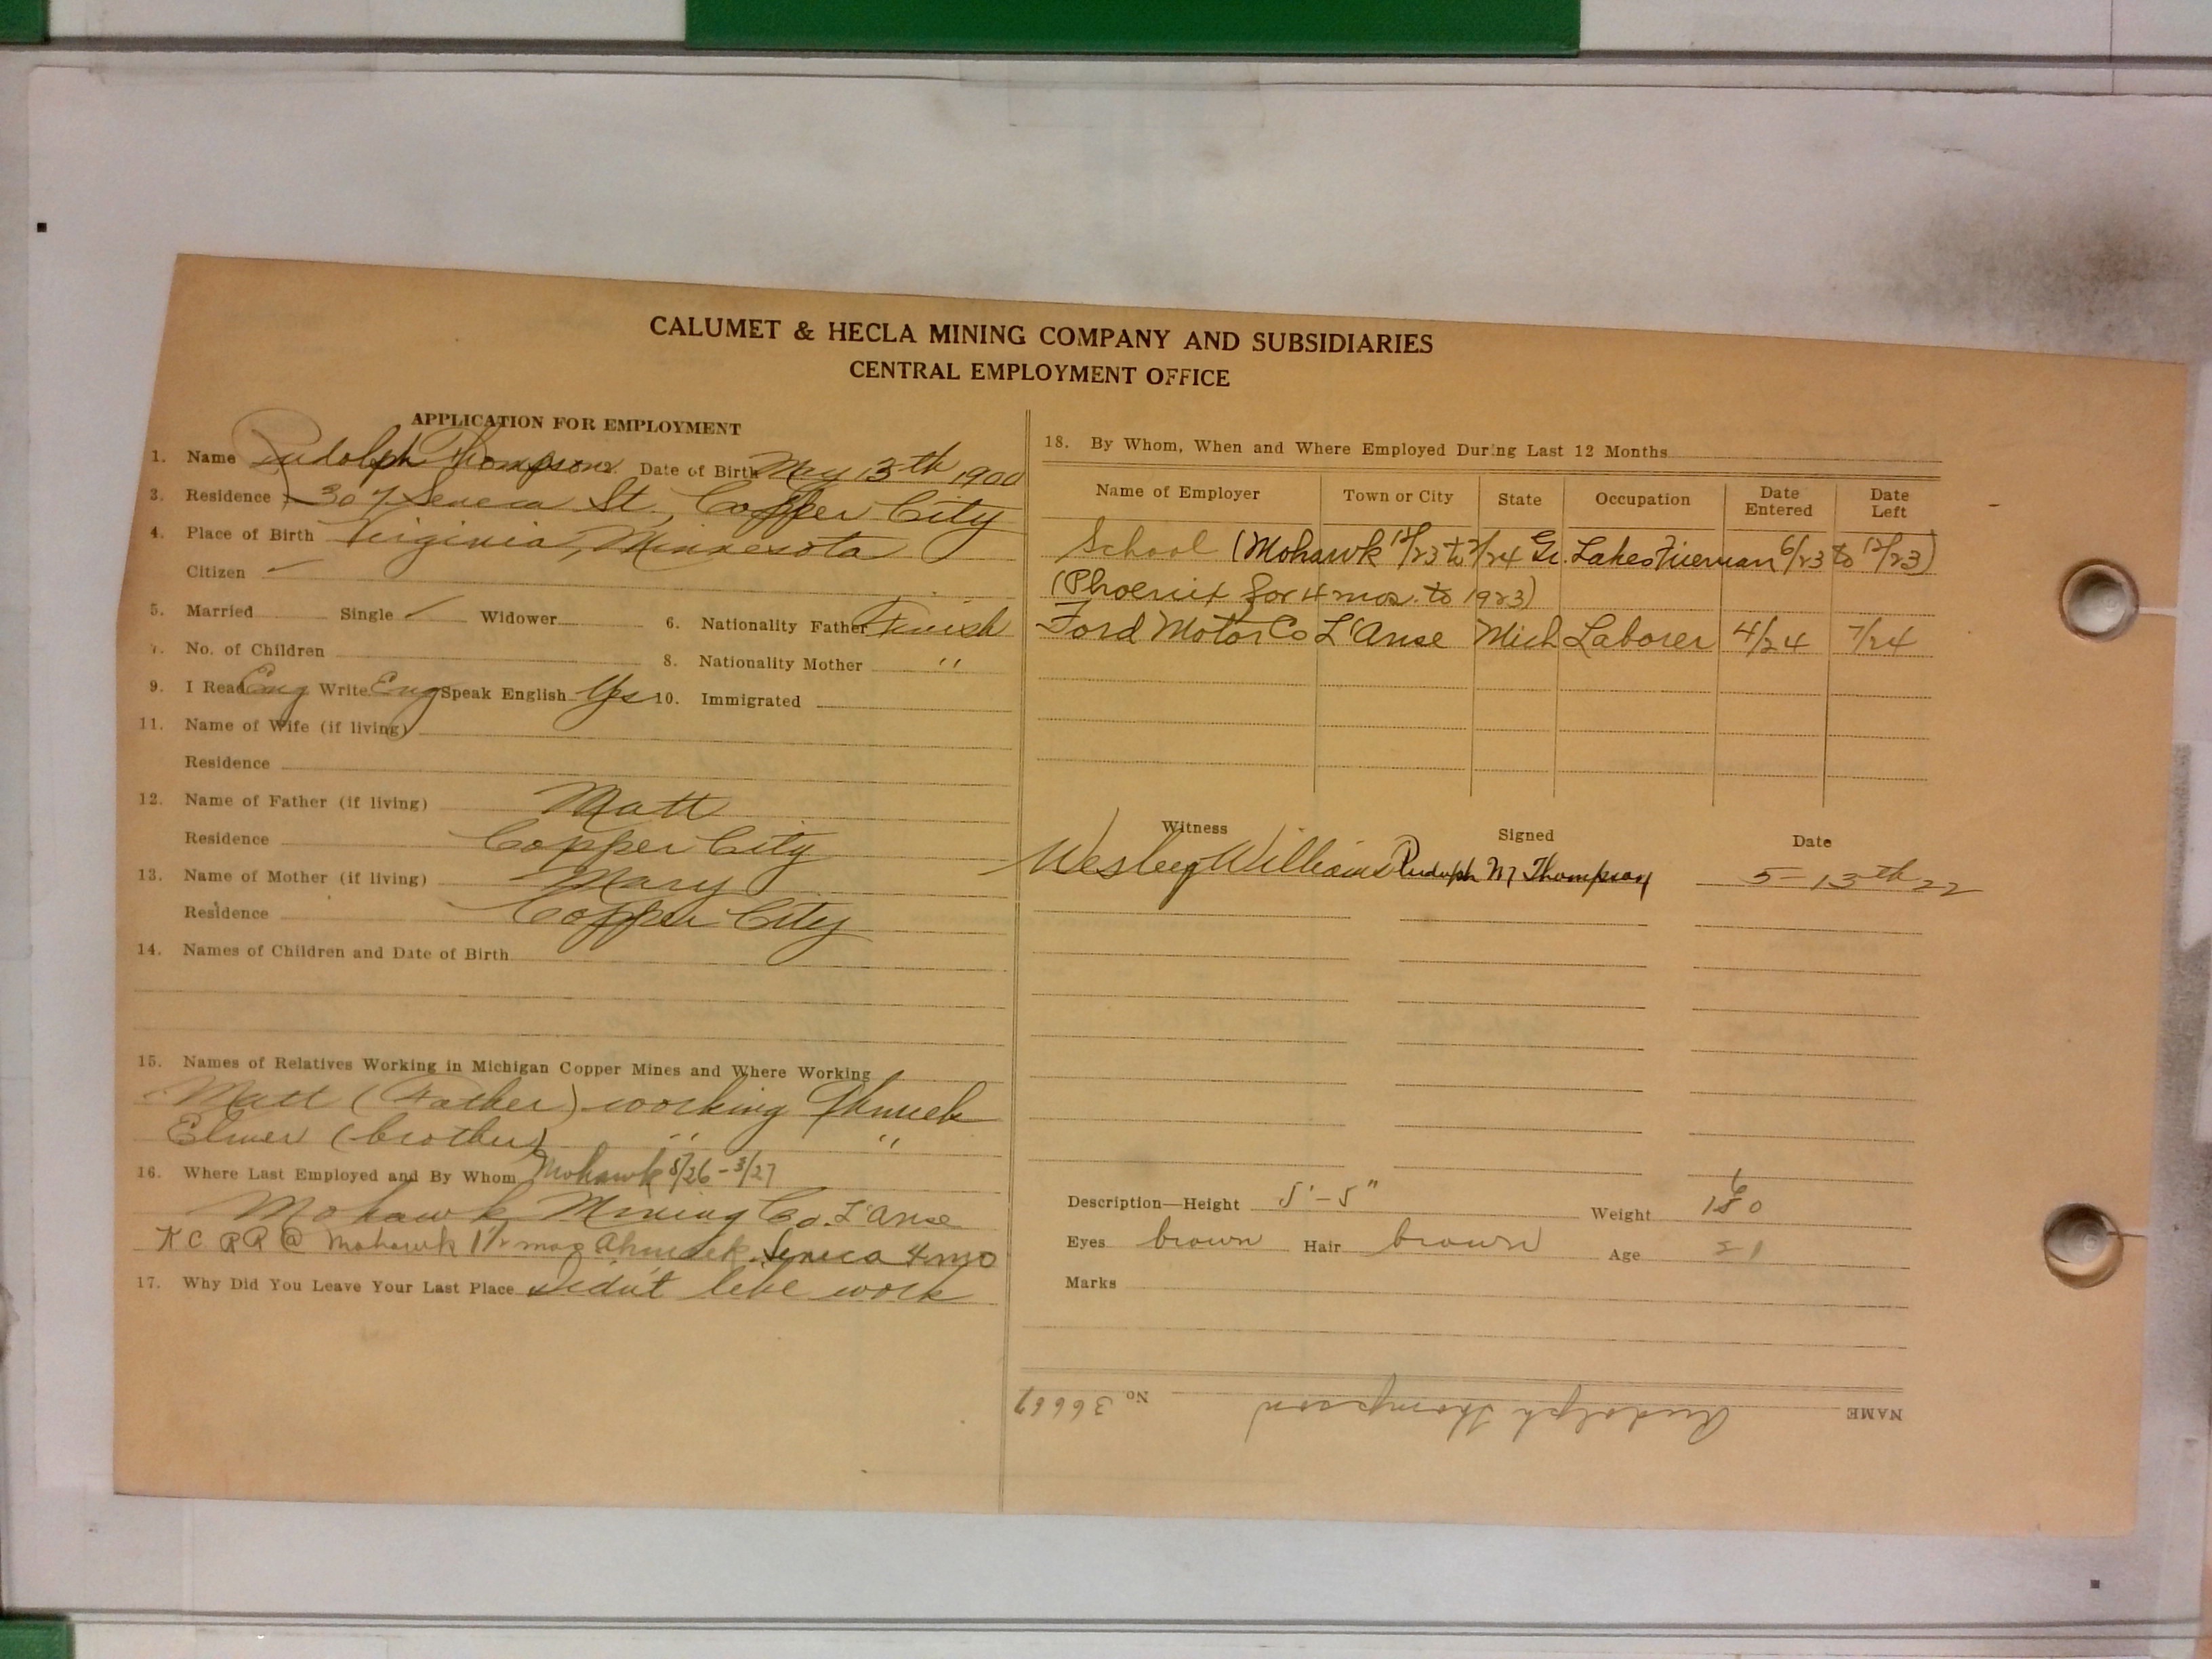 CALUMET & HECLA MINING COMPANY AND SUBSIDIARIES
CENTRAL EMPLOYMENT OFFICE
APPLICATION FOR EMPLOYMENT
1. Name Rudolph Thompson Date of Birth May 13th 1900
3. Residence 307 Seneca St., Copper City
4. Place of Birth Virginia, Minnesota
Citizen ✓
5. Married Single ✓ Widower 6. Nationality Father Finish
7. No. of Children 8. Nationality Mother "
9. I Read Eng Write Eng Speak English Yes 10. Immigrated
11. Name of Wife (if living)
Residence
12. Name of Father (if living) Matt
Residence Copper City
13. Name of Mother (if living) Mary
Residence Copper City
14. Names of Children and Date of Birth
15. Names of Relatives Working in Michigan Copper Mines and Where Working
Matt (Father) working Ahmeek
Elmer (brother) " "
16. Where Last Employed and By Whom Mohawk 8/26 - 3/27
Mohawk Mining Co. L'Anse
KC RR @ Mohawk 1½ mos Ahmeek. Seneca 4 mo
17. Why Did You Leave Your Last Place Didn't like work
18. By Whom, When and Where Employed During Last 12 Months
Name of Employer Town or City State Occupation Date Entered Date Left
School (Mohawk 12/23 to 2/24 Gr. Lakes Fireman 6/23 to 12/23)
(Phoenix for 4 mos. to 1923)
Ford Motor Co L'Anse Mich Laborer 4/24 7/24
Witness Signed Date
Wesley Williams Rudolph M Thompson 5-13th 22
Description—Height 5'-5" Weight 160
Eyes brown Hair brown Age 21
Marks
NAME Rudolph Thompson No. 36667